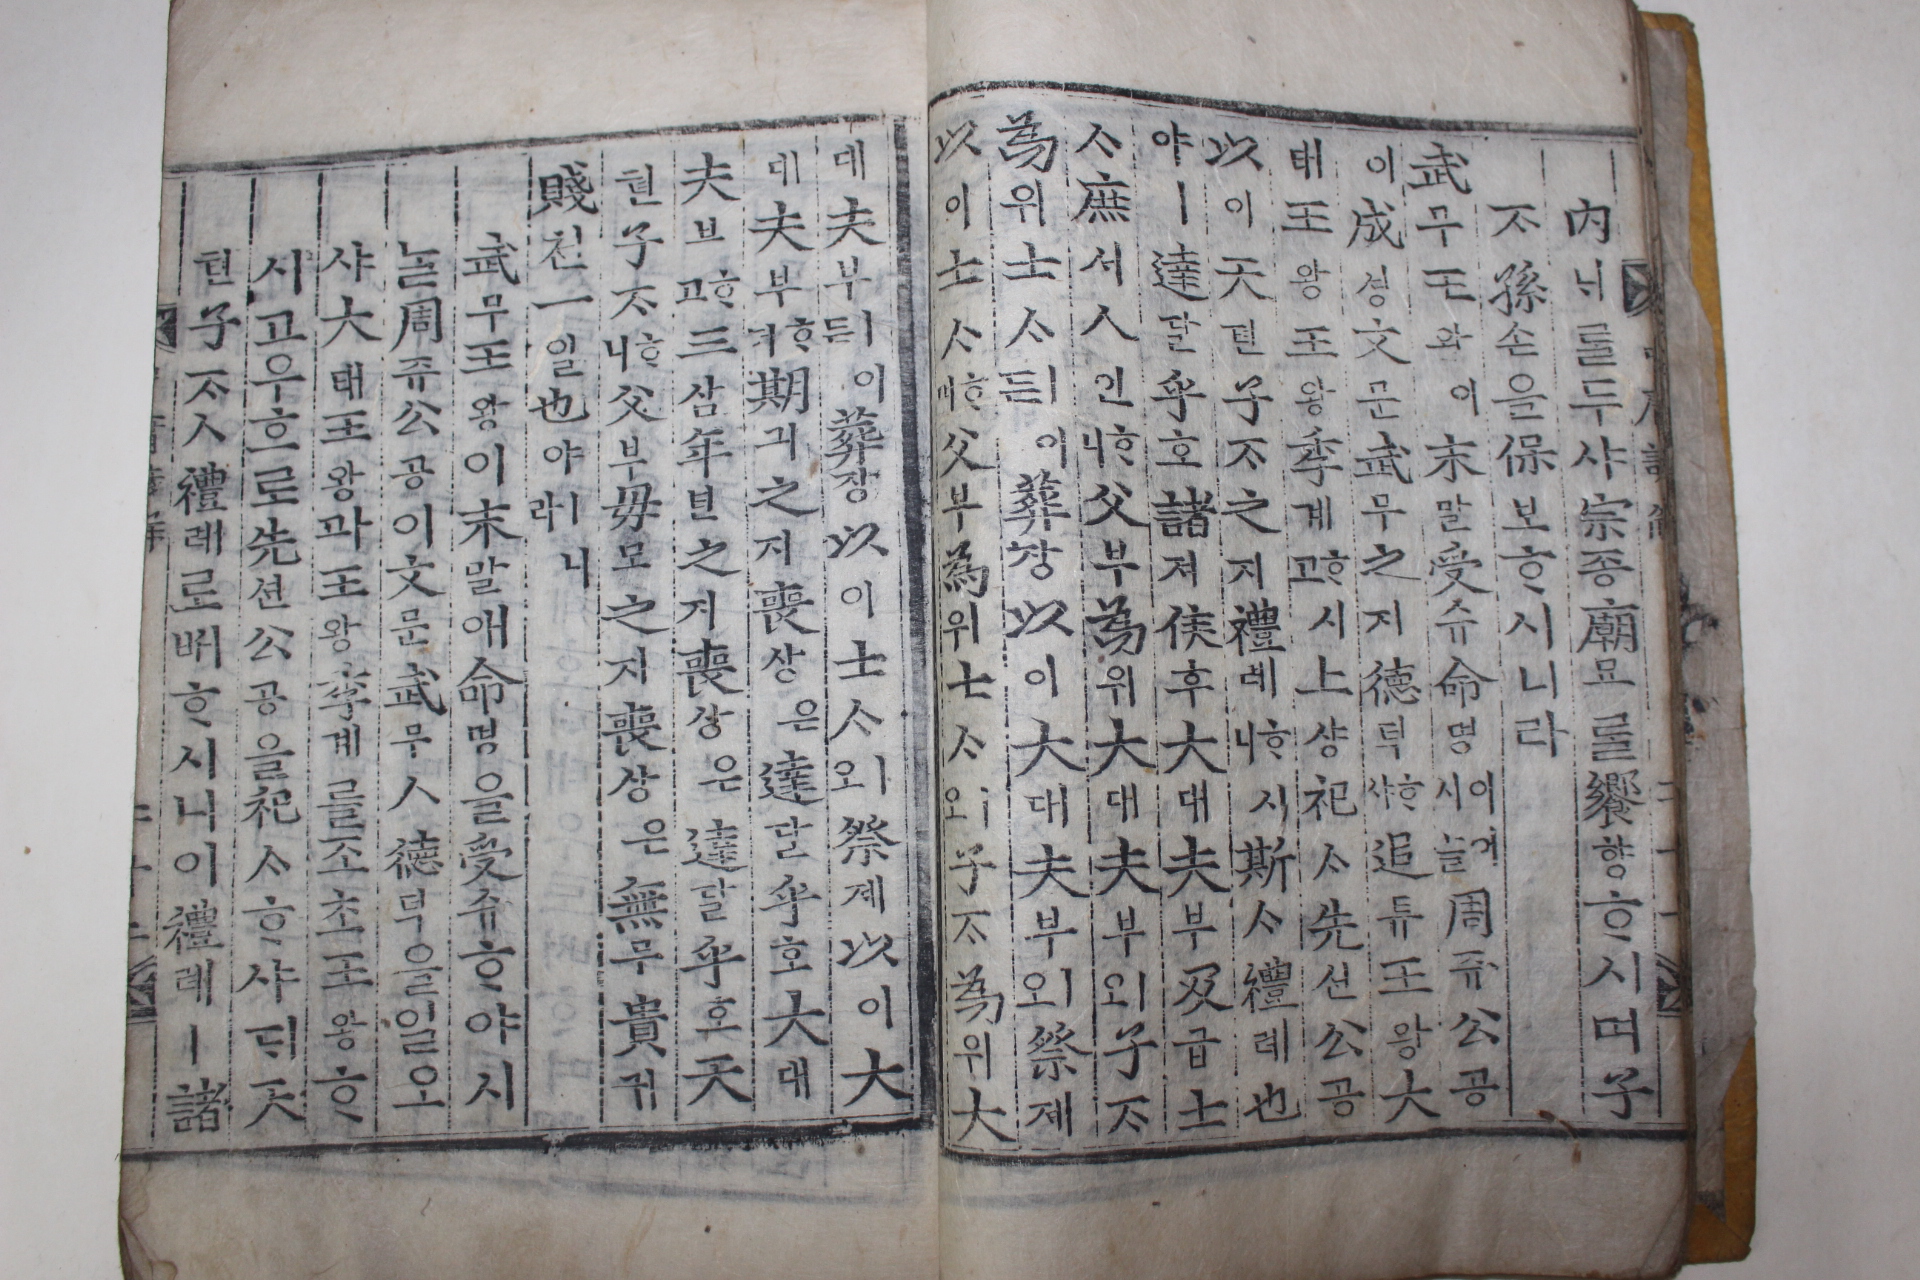 內ᄂᆡ를두샤宗종廟묘를饗향ᄒᆞ시며子
ᄌᆞ孫손을保보ᄒᆞ시니라
武무王왕이末말受슈命명이어시ᄂᆞᆯ周쥬公공
이成셩文문武무之지德덕ᄒᆞ샤追튜王왕大
태王왕王왕季계ᄒᆞ고시上샹祀ᄉᆞ先션公공
以이天텬子ᄌᆞ之지禮례ᄒᆞ시니斯ᄉᆞ禮례也
야ㅣ達달乎호諸져侯후大대夫부及급士
ᄉᆞ庶서人인ᄒᆞ니父부爲위大대夫부ㅣ오子ᄌᆞ
爲위士ᄉᆞㅣ어든葬장以이大대夫부ㅣ오祭졔
以이士ᄉᆞᄒᆞ며父부爲위士ᄉᆞㅣ오子ᄌᆞ爲위大
대夫부ㅣ어든葬장以이士ᄉᆞㅣ오祭졔以이大
대夫부ᄒᆞ며期긔之지喪상은達달乎호大대
夫부ᄒᆞ고三삼年년之지喪상은達달乎호天
텬子ᄌᆞᄒᆞ니父부母모之지喪상은無무貴귀
賤쳔一일也야ㅣ니라
武무王왕이末말애命명을受슈ᄒᆞ야시
ᄂᆞᆯ周쥬公공이文문武무ㅅ德덕을일오
샤大태王왕과王왕季계를조초王왕ᄒᆞ
시고우흐로先션公공을祀ᄉᆞᄒᆞ샤ᄃᆡ天
텬子ᄌᆞㅅ禮례로ᄡᅥᄒᆞ시니이禮례ㅣ諸